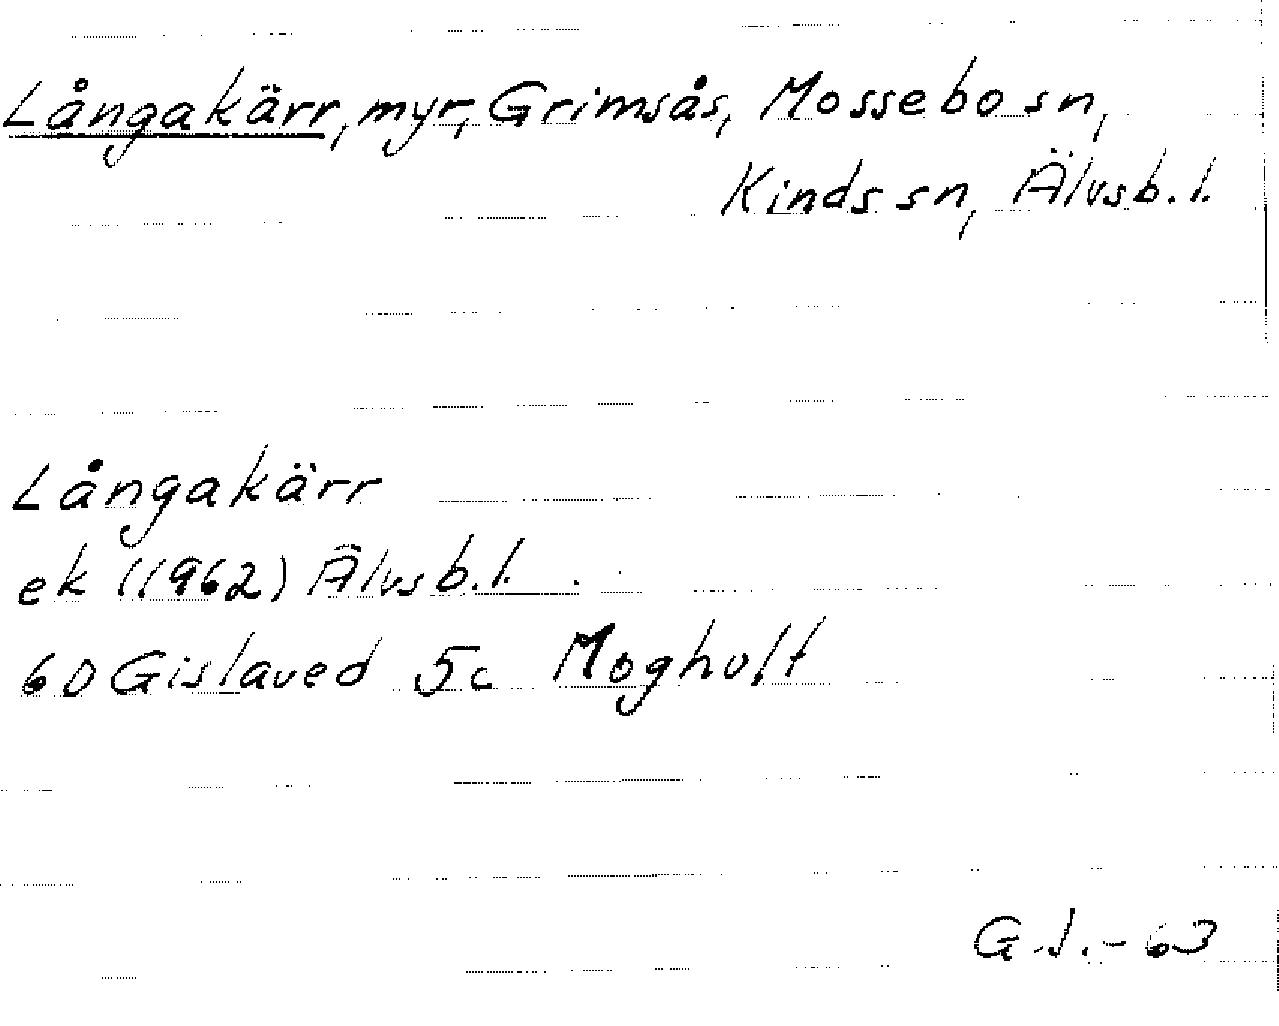 Långakärr, myr, Grimsås, Mossebo sn,
Kinds sn, Älvsb. l.
Långakärr
ek (1962) Älvsb. l.
6D Gislaved 5c Moghult
G.J.-63